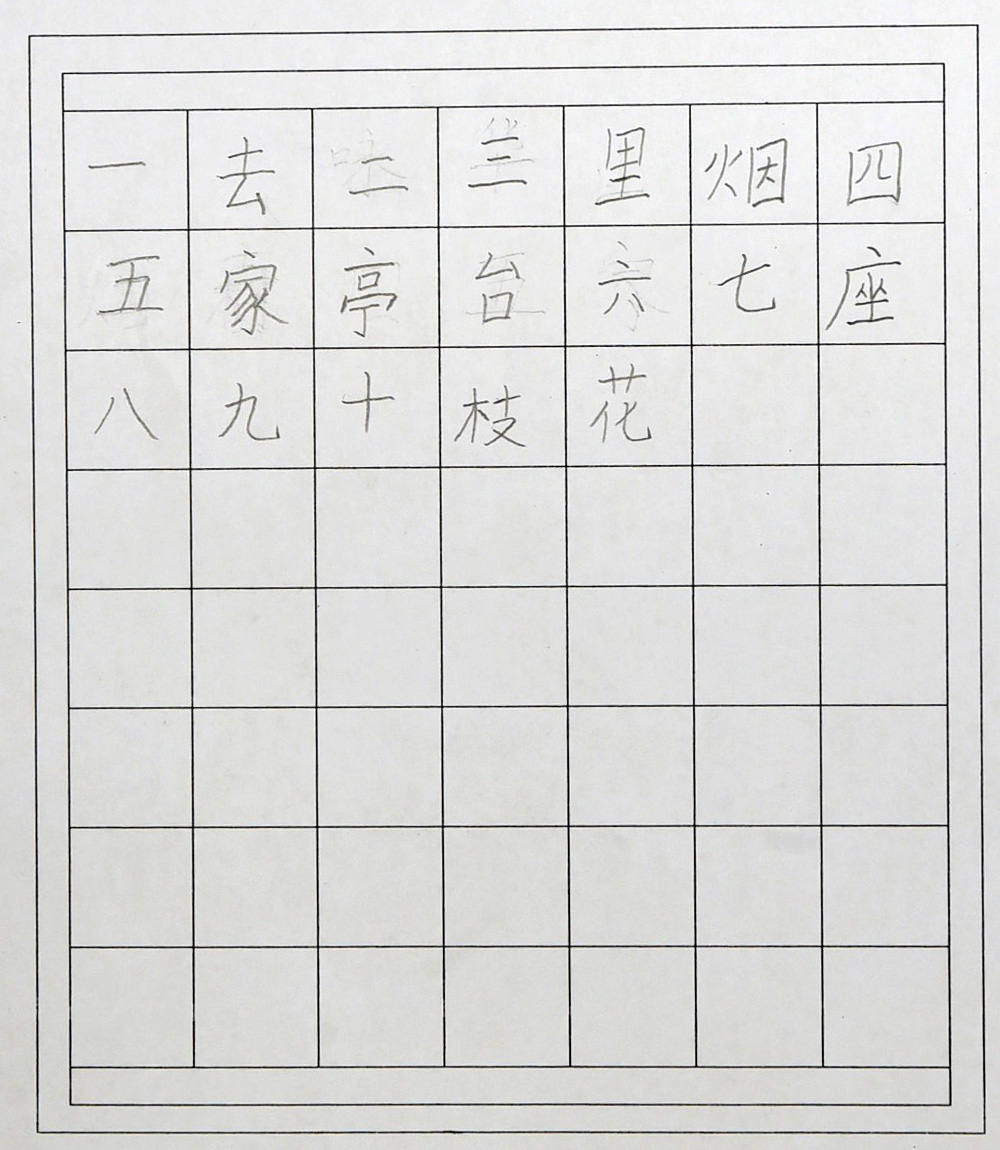 一去二三里烟四
五家亭台六七座
八九十枝花